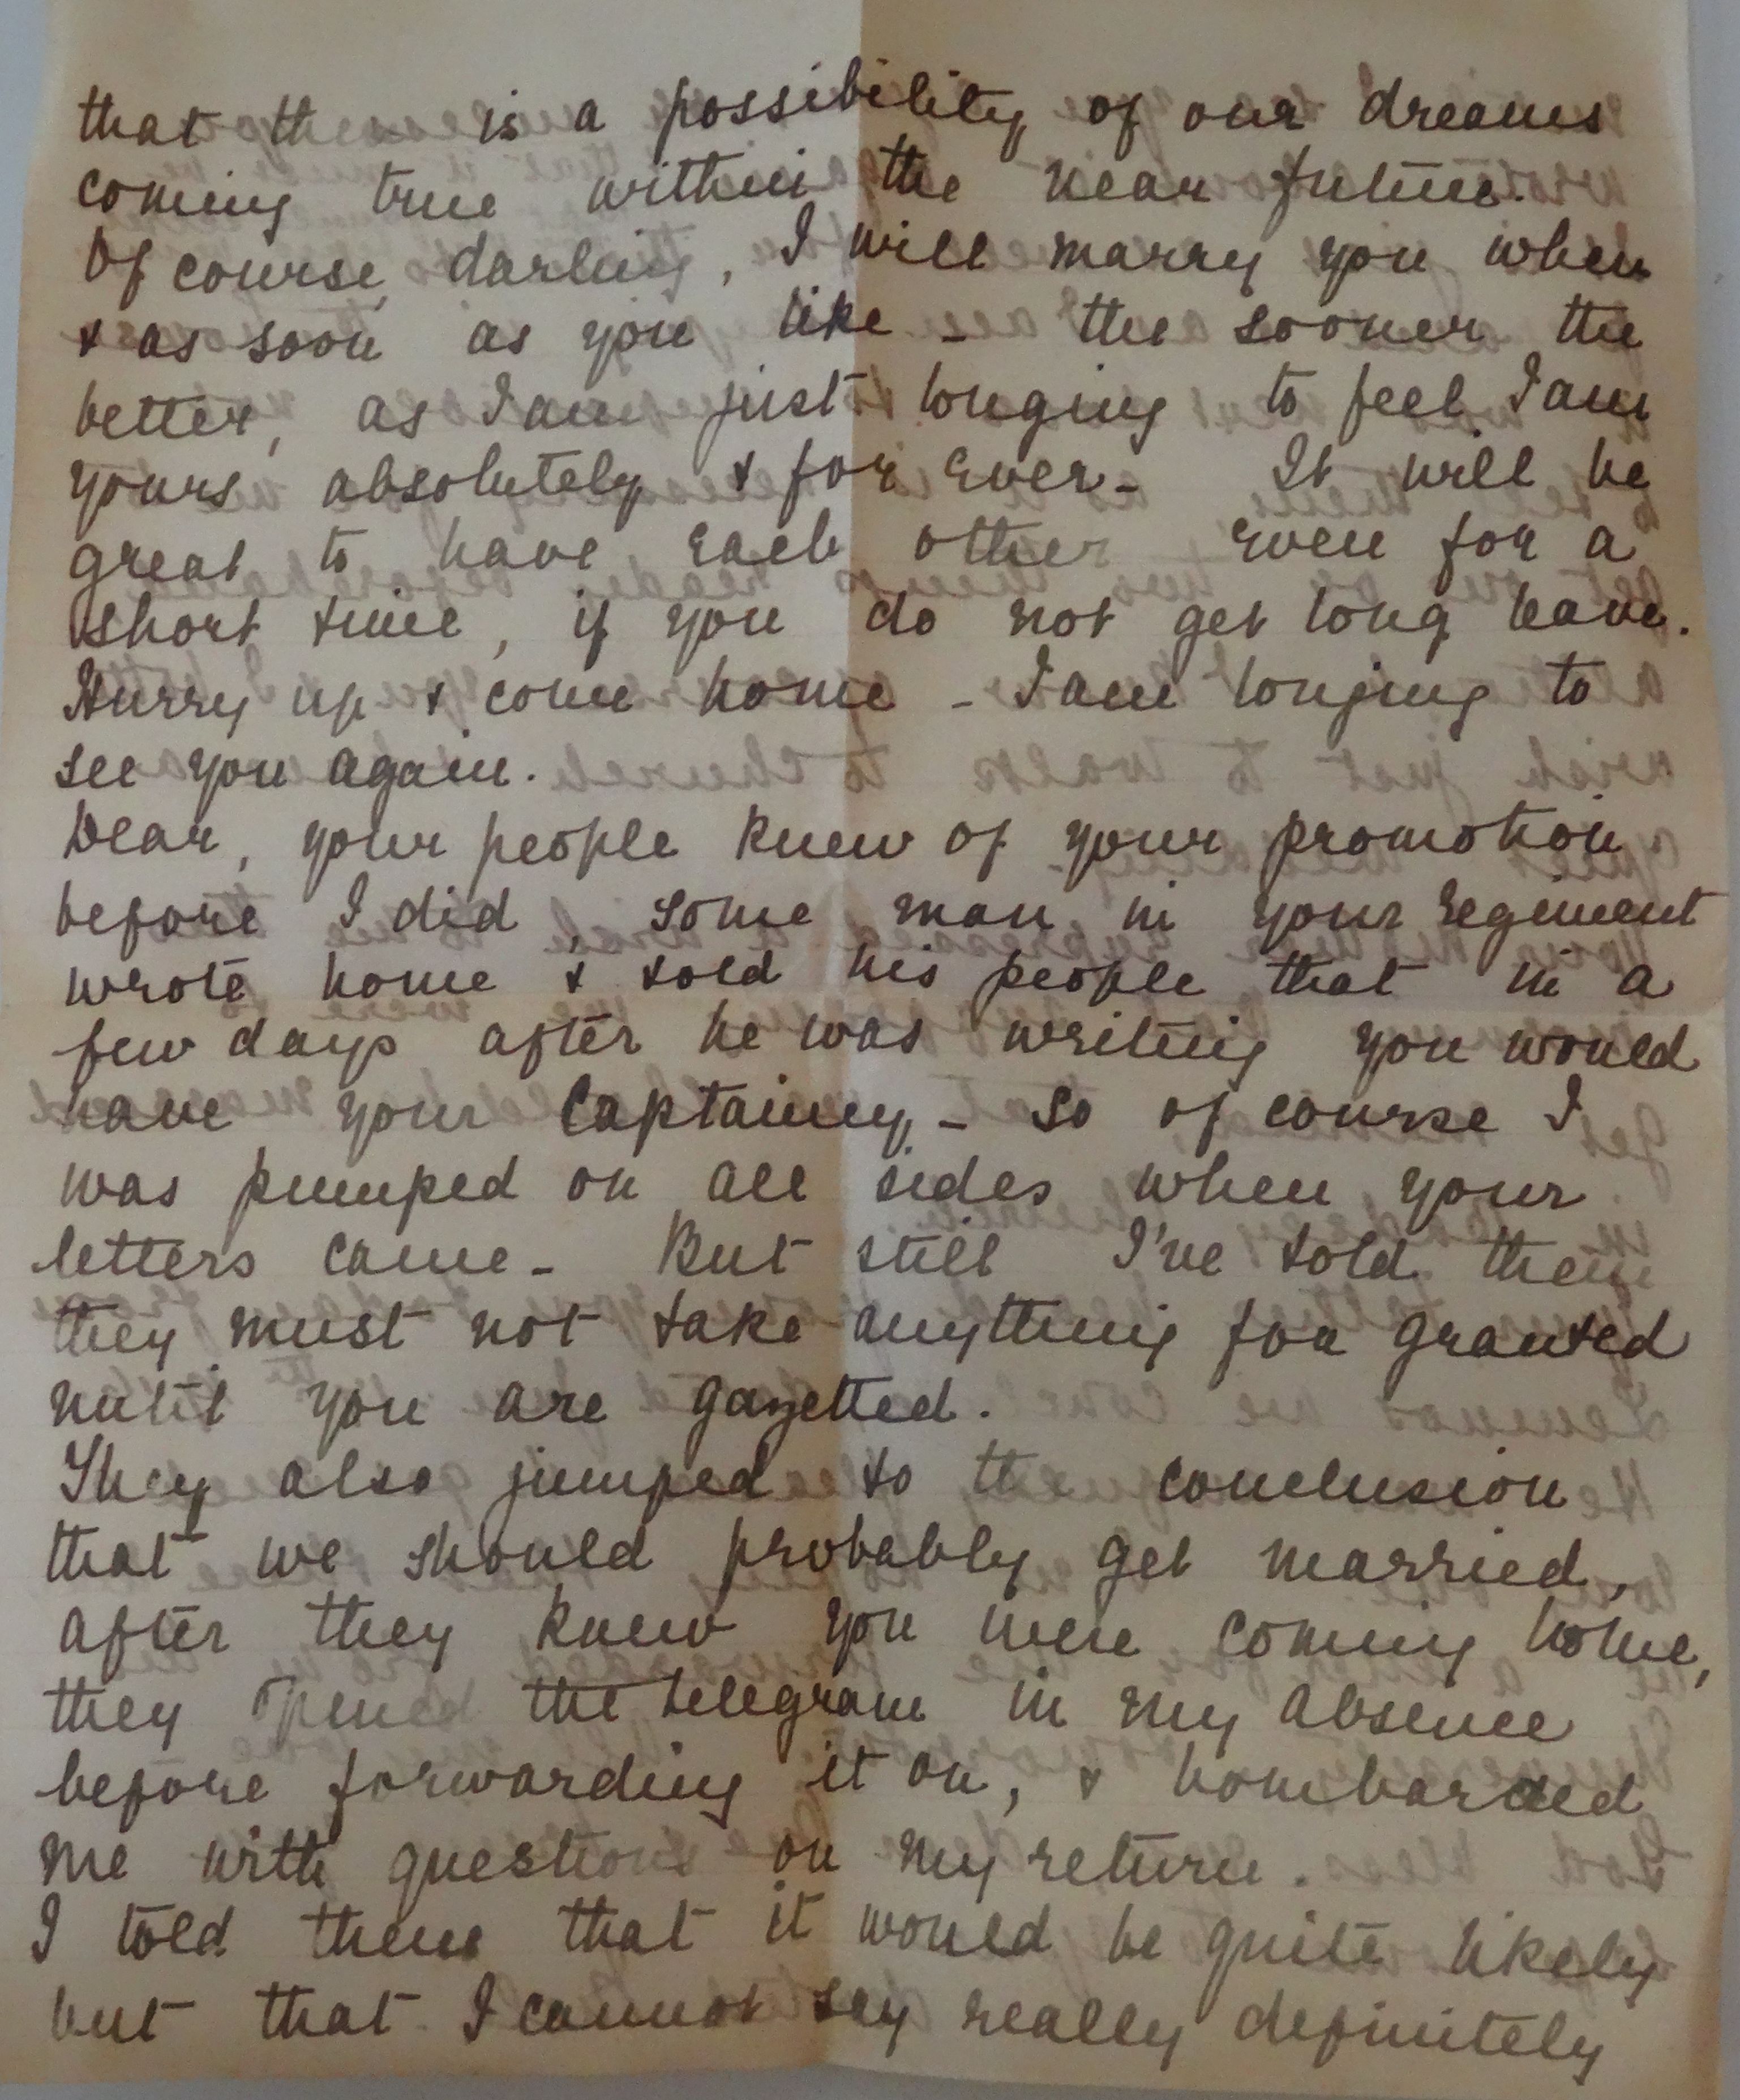 that there is a possibility of our dreams
coming true within the near future.
Of course, darling, I will marry you when
& as soon as you like - the sooner the
better, as I am just longing to feel I am
yours absolutely & for ever - It will be
great to have each other even for a
short time, if you do not get long leave.
Hurry up & come home - I am longing to
see you again.
Dear, your people knew of your promotion
before I did, some man in your regiment
wrote home & told his people that in a
few days after he was writing you would
have your Captaincy - so of course I
was pumped on all sides when your
letters came - But still I've told them
they must not take anything for granted
until you are gazetted.
They also jumped to the conclusion
that we should probably get married,
after they knew you were coming home,
they opened the telegram in my absence
before forwarding it on, & bombarded
me with questions on my return.
I told them that it would be quite likely
but that I cannot say really definitely